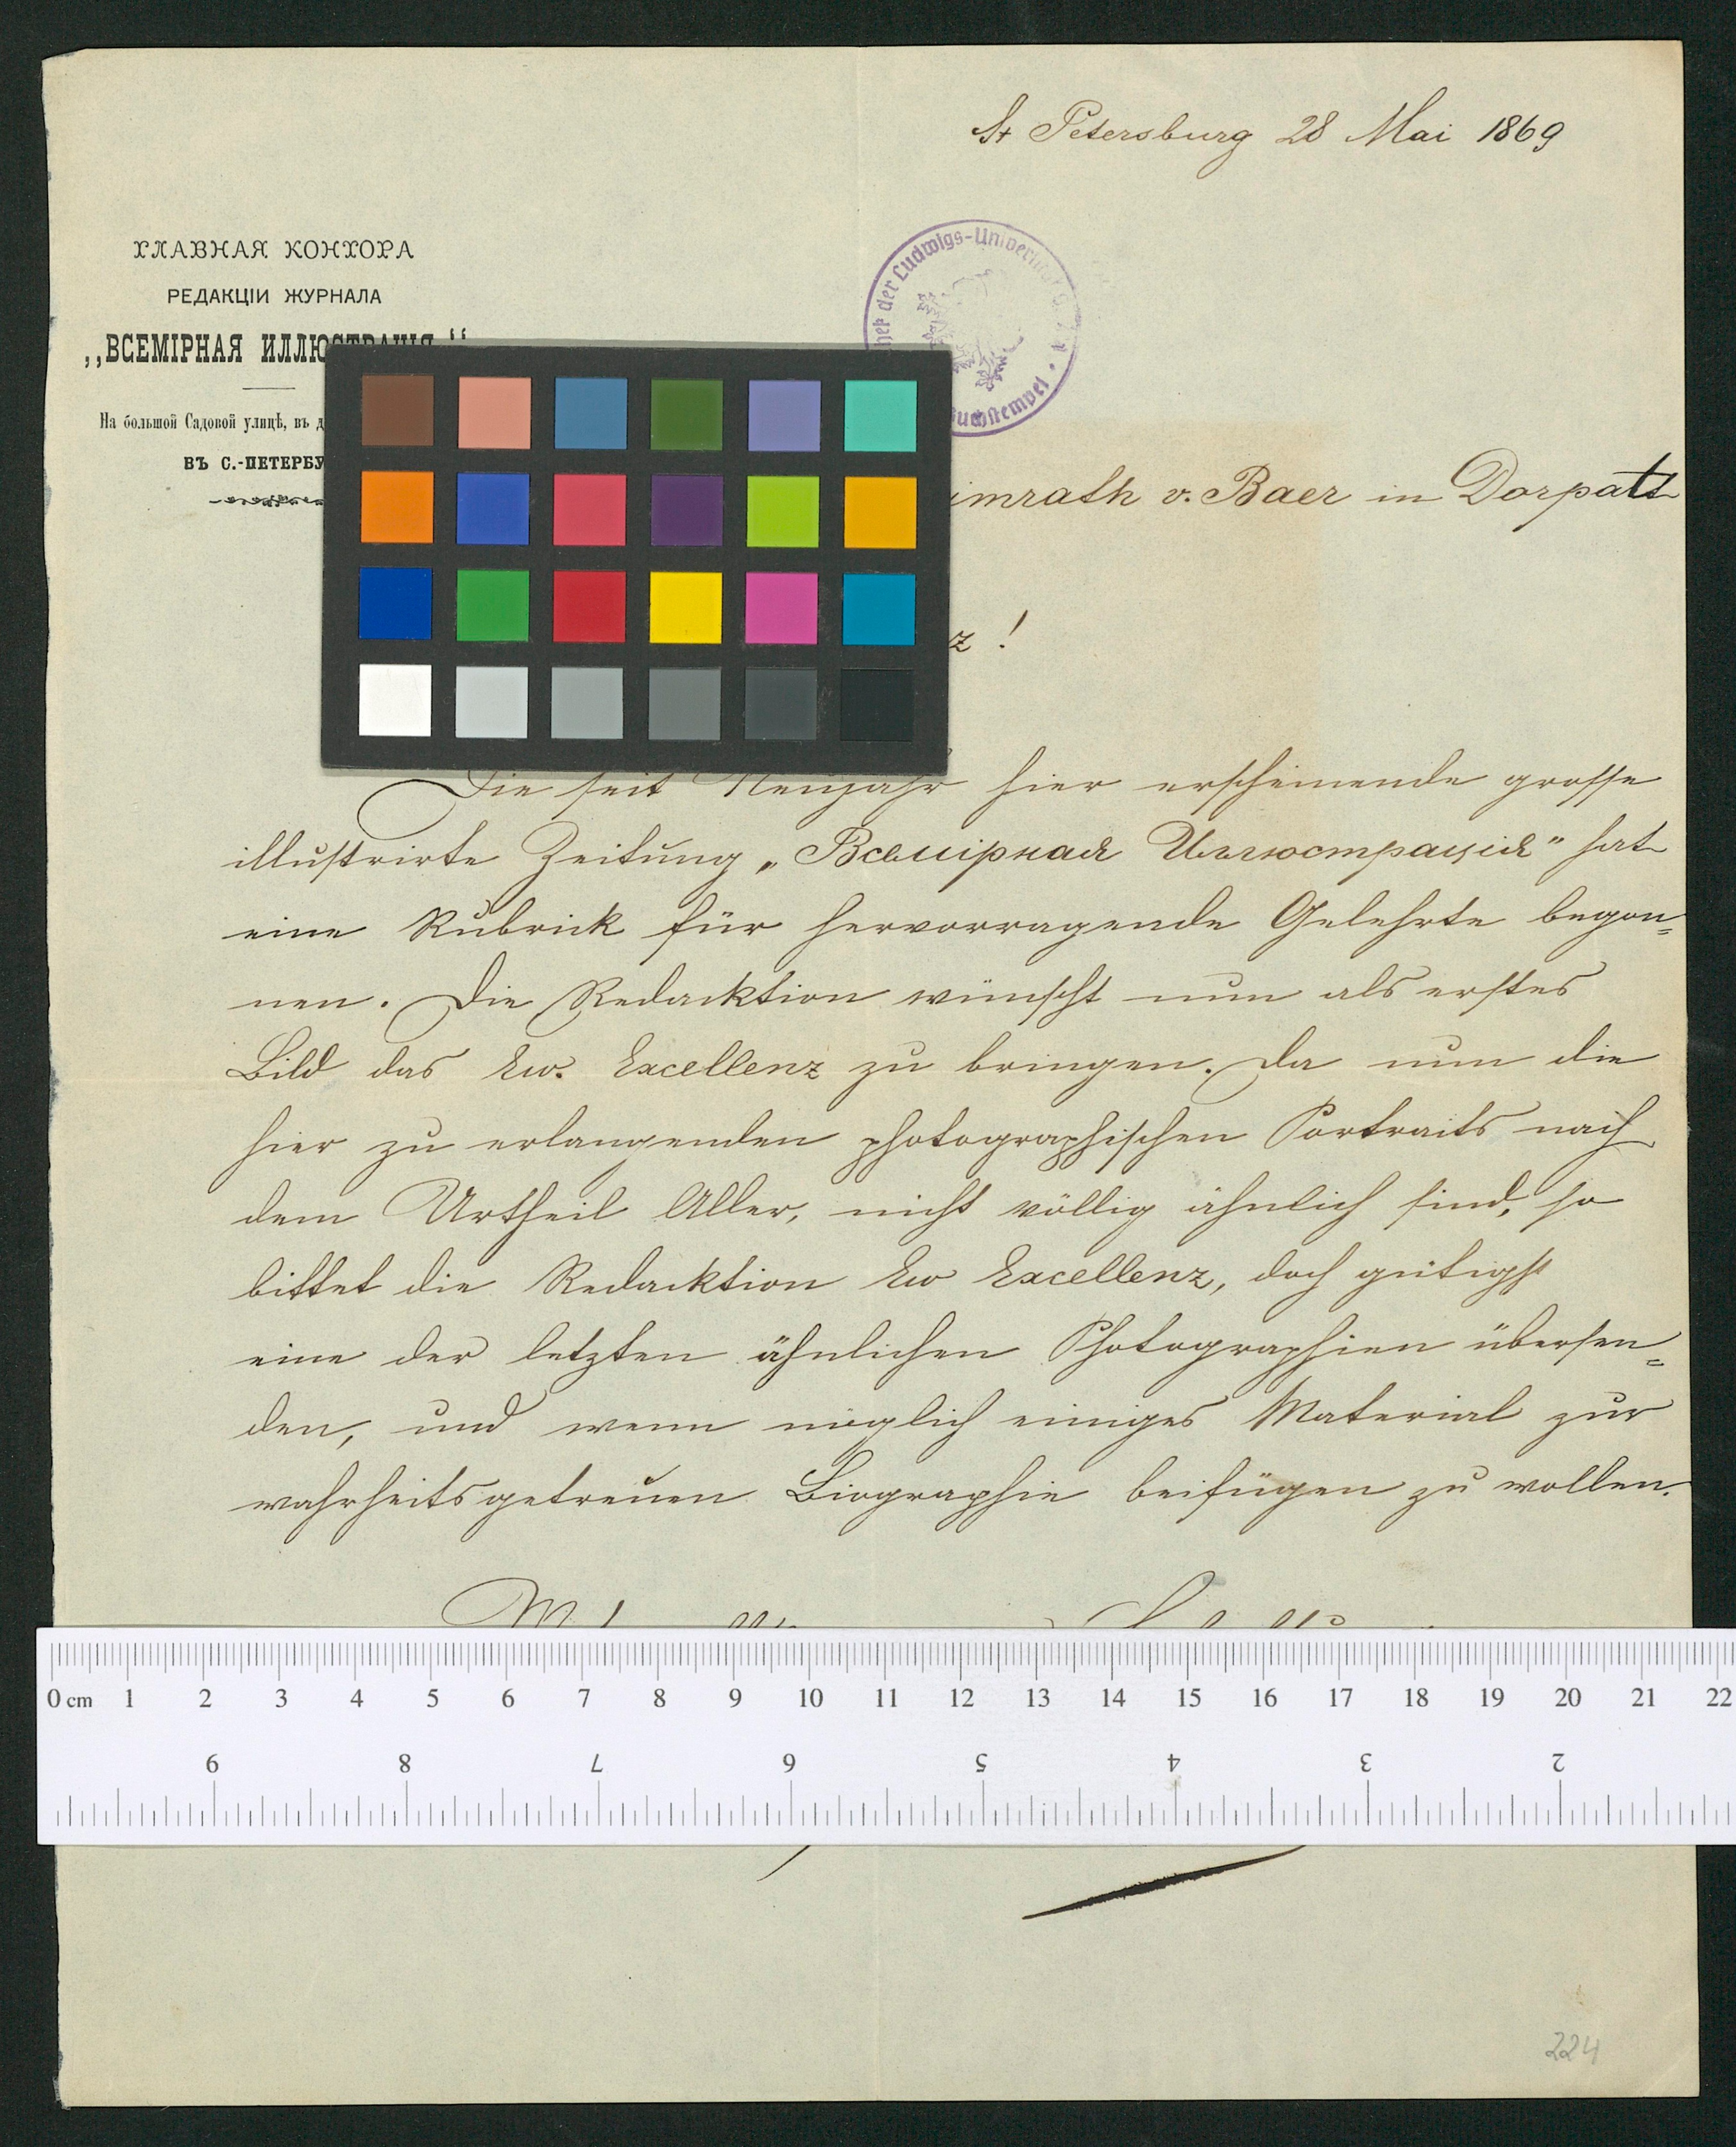 St Petersburg 28 Mai 1869
ГЛАВНАЯ КОНТОРА
РЕДАКЦІИ ЖУРНАЛА
„ВСЕМІРНАЯ
На большой Садовой улицѣ, въ
ВЪ С.-ПЕТЕРБУ
der Ludwigs-
v. Baer in Dorpat
z!
Die seit Neujahr hier erscheinende grosse
illustrirte Zeitung „Всемірная Иллюстрація" hat
eine Rubrick für hervorragende Gelehrte begon=
nen. Die Redacktion wünscht nun als erstes
Bild das Ew. Excellenz zu bringen. Da nun die
hier zu erlangenden photographischen Portraits nach
dem Urtheil Aller, nicht völlig ähnlich sind, so
bittet die Redacktion Ew Excellenz, doch gütigst
eine der letzten ähnlichen Photographien übersen=
den, und wenn möglich einiges Material zur
wahrheitsgetreuen Biographie beifügen zu wollen.
0 cm 1 2 3 4 5 6 7 8 9 10 11 12 13 14 15 16 17 18 19 20 21 22
9 8 7 6 5 4 3 2
224